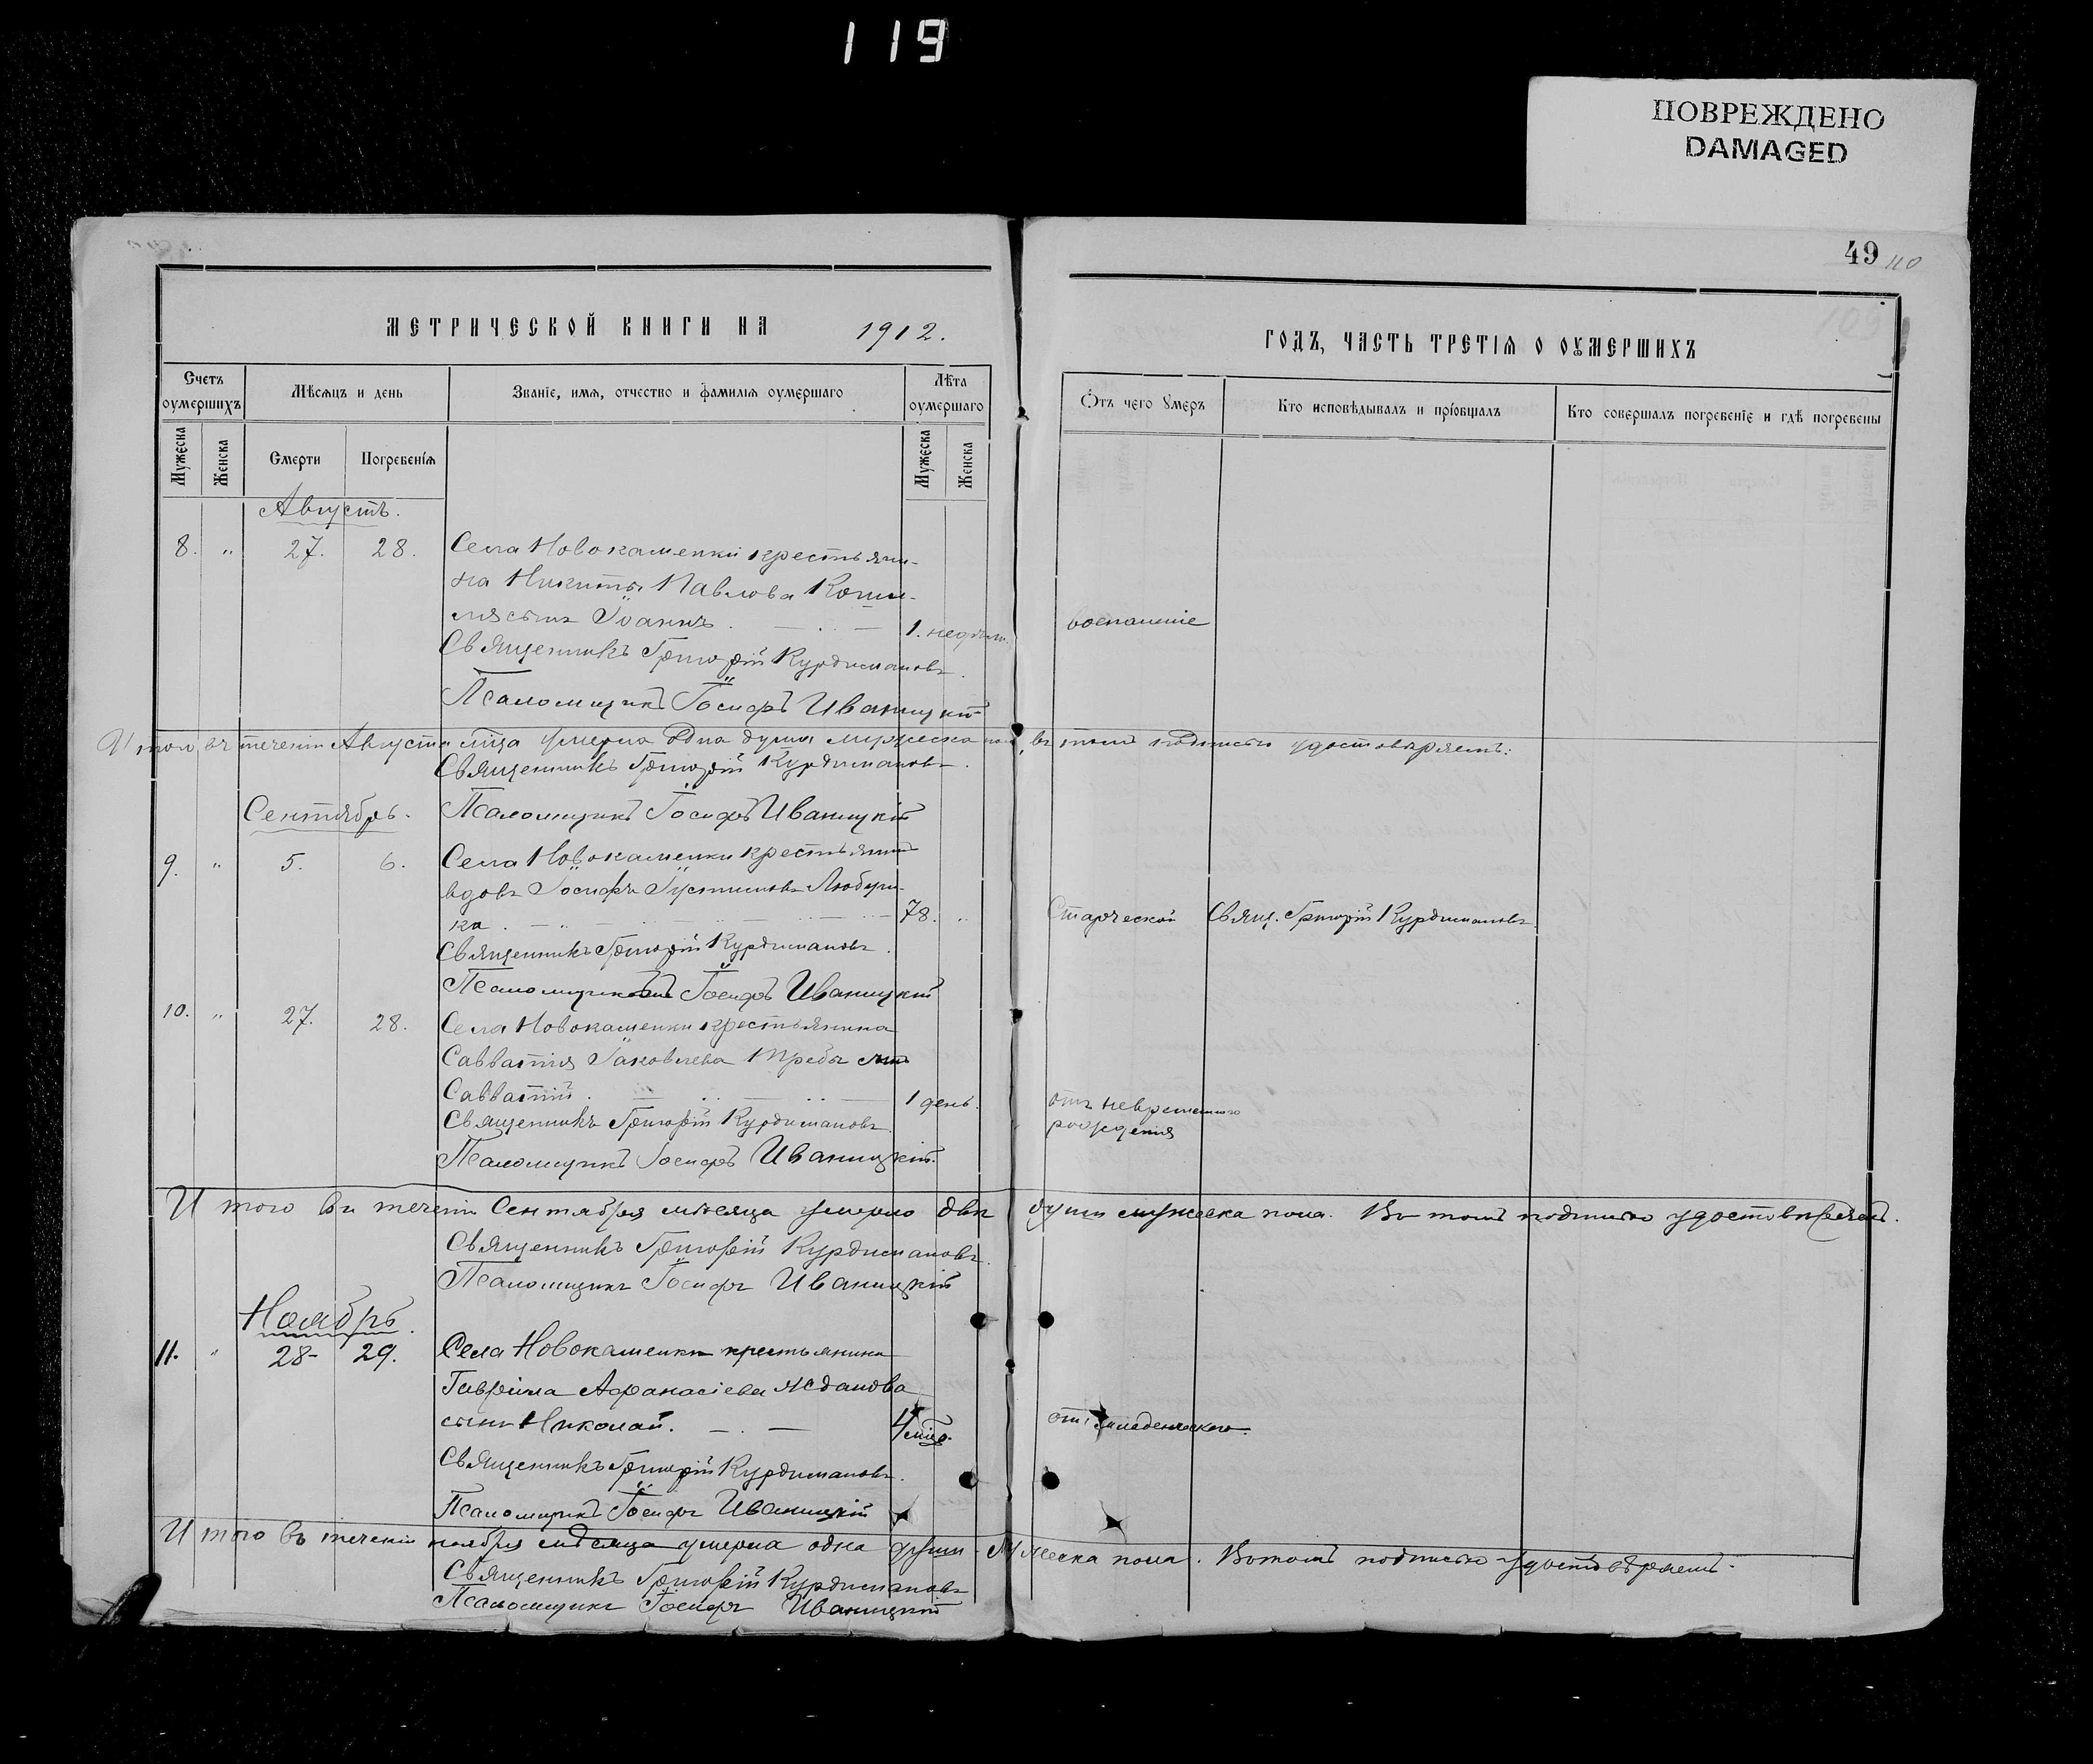 119
ПОВРЕЖДЕНО
DAMAGED
49 110
МЕТРИЧЕСКОЙ КНИГИ НА 1912.
ГОДЪ, ЧАСТЬ ТРЕТІЯ О ОУМЕРШИХЪ
Счетъ оумершихъ
Мѣсяцъ и день
Званіе, имя, отчество и фамилія оумершаго
Лѣта оумершаго
Отъ чего умеръ
Кто исповѣдывалъ и пріобщалъ
Кто совершалъ погребеніе и гдѣ погребены
Мужеска
Женска
Смерти
Погребенія
Мужеска
Женска
Августъ.
8. " 27. 28. Села Новокаменки крестьяни-
на Никиты Павлова
сынъ Іоаннъ. 1. недѣли. воспаленіе
Священникъ Григорій Курдимановъ.
Псаломщикъ Іосифъ Иваницкій
Итого въ теченіи Августа мѣца умерла одна душа мужеска пола, въ томъ подписью удостовѣряемъ:
Священникъ Григорій Курдимановъ.
Сентябрь. Псаломщикъ Іосифъ Иваницкій
9. " 5. 6. Села Новокаменки крестьянинъ
вдовъ Іосифъ Іустиновъ
ка. 78. " Старческой Свящ. Григорій Курдимановъ.
Священникъ Григорій Курдимановъ.
Псаломщикъ Іосифъ Иваницкій
10. " 27. 28. Села Новокаменки крестьянина
Савватія Іаковлева сынъ
Савватій. 1 день. отъ невременнаго
рожденія
Священникъ Григорій Курдимановъ
Псаломщикъ Іосифъ Иваницкій.
Итого въ теченіи Сентября мѣсяца умерло двѣ души мужеска пола. Въ томъ подписью удостовѣряемъ.
Священникъ Григорій Курдимановъ.
Псаломщикъ Іосифъ Иваницкій
Ноябрь.
11. " 28- 29. Села Новокаменки крестьянина
Гавріила Афанасіева Жданова
сынъ Николай. 4 мѣс. отъ младенческаго.
Священникъ Григорій Курдимановъ.
Псаломщикъ Іосифъ Иваницкій
Итого въ теченіи ноября мѣсяца умерла одна душа мужеска пола. Въ томъ подписью удостовѣряемъ.
Священникъ Григорій Курдимановъ
Псаломщикъ Іосифъ Иваницкій